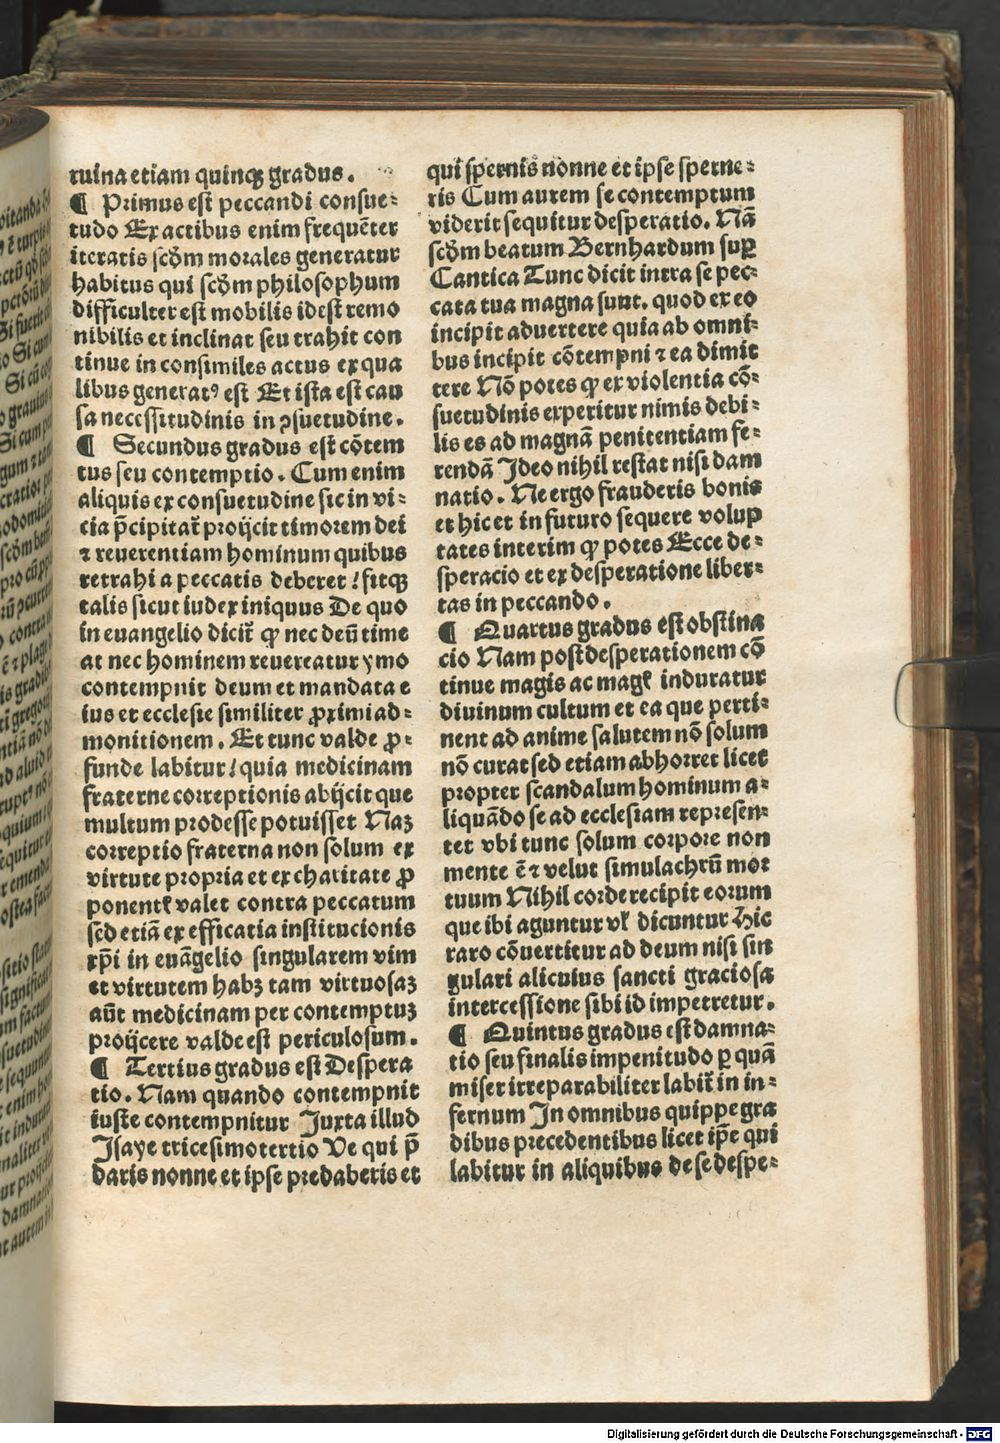 ruina etiam quinqꝫ gradus.
¶ Primus est peccandi consue⸗
tudo Ex actibus enim frequēter
iteratis scđm morales generatur
habitus qui scđm philosophum
difficulter est mobilis idest remo
nibilis et inclinat seu trahit con
tinue in consimiles actus ex qua
libus generatꝰ est Et ista est cau
sa necessitudinis in ꝯsuetudine.
¶ Secundus gradus est cōtem
tus seu contemptio. Cum enim
aliquis ex consuetudine sic in vi⸗
cia p̄cipitat᷑ proijcit timorem dei
⁊ reuerentiam hominum quibus
retrahi a peccatis deberet! fitqꝫ
talis sicut iudex iniquus De quo
in euangelio dicit᷑ ꝙ nec deū time
at nec hominem reuereatur ymo
contempnit deum et mandata e
ius et ecclesie similiter ꝓximi ad⸗
monitionem. Et tunc valde ꝓ⸗
funde labitur! quia medicinam
fraterne correptionis abijcit que
multum prodesse potuisset Naꝫ
correptio fraterna non solum ex
virtute propria et ex charitate ꝓ
ponentꝭ valet contra peccatum
sed etiā ex efficatia institucionis
xp̄i in euāgelio singularem vim
et virtutem habꝫ tam virtuosaꝫ
aūt medicinam per contemptuꝫ
proijcere valde est periculosum.
¶ Tertius gradus est Despera
tio. Nam quando contempnit
iuste contempnitur Juxta illud
Jsaye tricesimotertio Ve qui p̄
daris nonne et ipse predaberis et
qui spernis nonne et ipse sperne⸗
ris Cum autem se contemptum
viderit sequitur desperatio. Nā
scđm beatum Bernhardum suꝑ
Cantica Tunc dicit intra se pec⸗
cata tua magna sunt. quod ex eo
incipit aduertere quia ab omni⸗
bus incipit cōtempni ⁊ ea dimit
tere Nō potes ꝙ ex violentia cō⸗
suetudinis experitur nimis debi⸗
lis es ad magnā penitentiam fe⸗
rendā Jdeo nihil restat nisi dam
natio. Ne ergo frauderis bonis
et hic et in futuro sequere volup
tates interim ꝙ potes Ecce de⸗
speracio et ex desperatione liber⸗
tas in peccando.
¶ Quartus gradus est obstina
cio Nam post desperationem cō
tinue magis ac magꝭ induratur
diuinum cultum et ea que perti⸗
nent ad anime salutem nō solum
nō curat sed etiam abhorret licet
propter scandalum hominum a⸗
liquādo se ad ecclesiam represen⸗
tet vbi tunc solum corpore non
mente ē ⁊ velut simulachrū mor
tuum Nihil corde recipit eorum
que ibi aguntur vꝉ dicuntur Hic
raro cōuertitur ad deum nisi sin
gulari alicuius sancti graciosa
intercessione sibi id impetretur.
¶ Quintus gradus est damna⸗
tio seu finalis impenitudo ꝑ quā
miser irreparabiliter labit᷑ in in⸗
fernum Jn omnibus quippe gra
dibus precedentibus licet ip̄e qui
labitur in aliquibus de se despe⸗
Digitalisierung gefördert durch die Deutsche Forschungsgemeinschaft - DFG